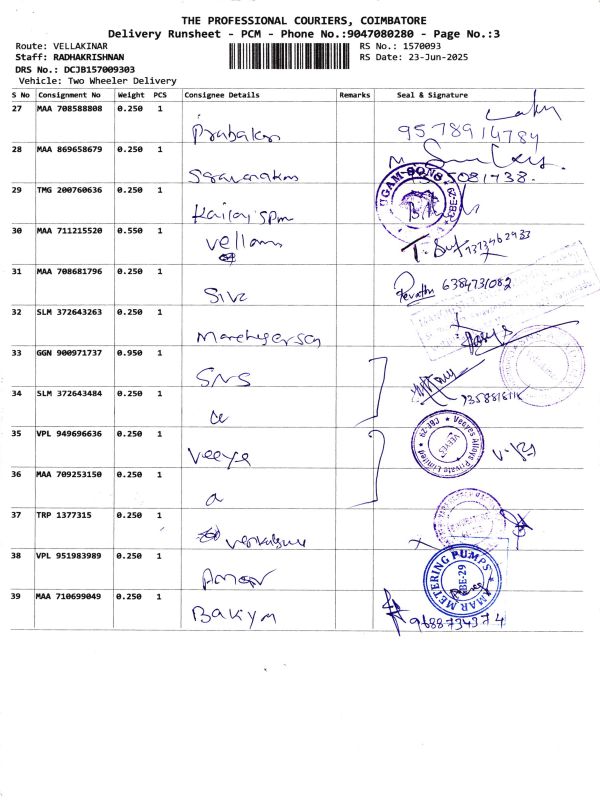 THE PROFESSIONAL COURIERS, COIMBATORE
Delivery Runsheet - PCM - Phone No.:9047080280 - Page No.:3
Route: VELLAKINAR RS No.: 1570093
Staff: RADHAKRISHNAN RS Date: 23-Jun-2025
DRS No.: DCJB157009303
Vehicle: Two Wheeler Delivery
S No Consignment No Weight PCS Consignee Details Remarks Seal & Signature
27 MAA 708588808 0.250 1
Prabakar 9578914784
28 MAA 869658679 0.250 1
Saravanakm
29 TMG 200760636 0.250 1
UGAM-SONS CBE-29
30 MAA 711215520 0.550 1
Vellam
31 MAA 708681796 0.250 1
Siva Revathi 6384731082
32 SLM 372643263 0.250 1
33 GGN 900971737 0.950 1
SNS
34 SLM 372643484 0.250 1
35 VPL 949696636 0.250 1
Veeye Veeyes Alloys Private Limited CBE-29 VEEYES
36 MAA 709253150 0.250 1
37 TRP 1377315 0.250 1
38 VPL 951983989 0.250 1
Amar AMAR METERING PUMPS CBE-29
39 MAA 710699049 0.250 1
Bakiya 9688734374